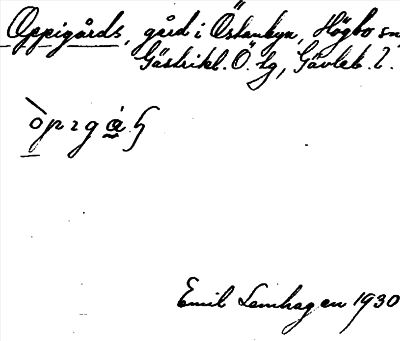 Oppigårds, gård i Östanbyn, Högbo sn
Gästrikl. Ö. hg, Gävleb. l.
Emil Lemhagen 1930